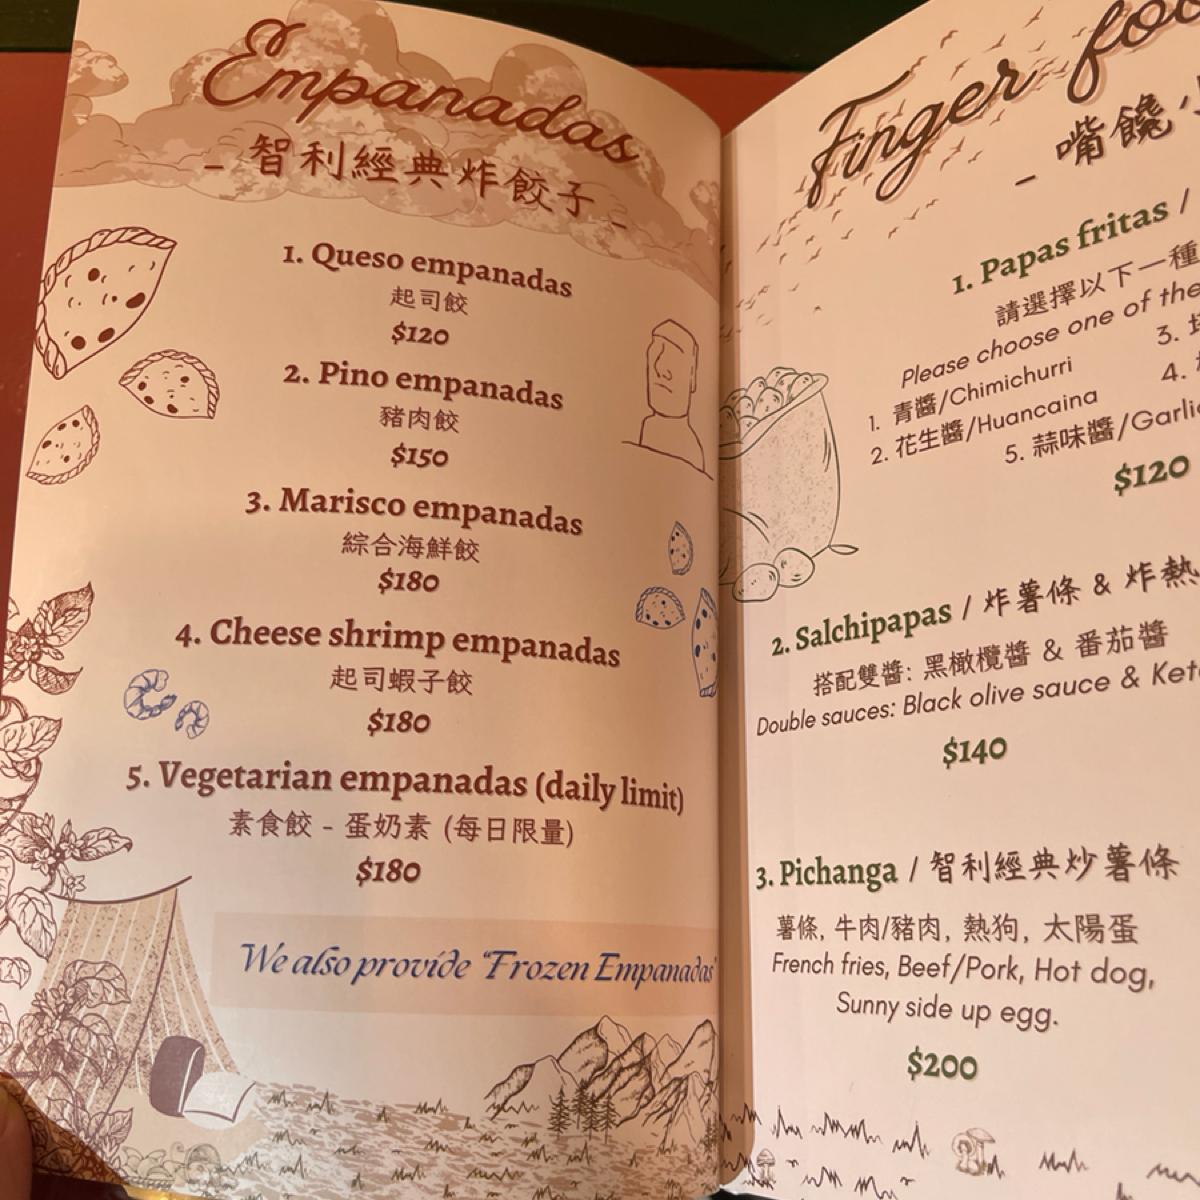 Empanadas
- 智利經典炸餃子 -
1. Queso empanadas
起司餃
$120
2. Pino empanadas
豬肉餃
$150
3. Marisco empanadas
綜合海鮮餃
$180
4. Cheese shrimp empanadas
起司蝦子餃
$180
5. Vegetarian empanadas (daily limit)
素食餃 - 蛋奶素 (每日限量)
$180
We also provide "Frozen Empanadas"
Finger
- 嘴饞
1. Papas fritas /
請選擇以下一種
Please choose one of the
1. 青醬/Chimichurri
3.
2. 花生醬/Huancaina
4.
5. 蒜味醬/Garlic
$120
2. Salchipapas / 炸薯條 & 炸熱
搭配雙醬: 黑橄欖醬 & 番茄醬
Double sauces: Black olive sauce & Ket
$140
3. Pichanga / 智利經典炒薯條
薯條, 牛肉/豬肉, 熱狗, 太陽蛋
French fries, Beef/Pork, Hot dog,
Sunny side up egg.
$200